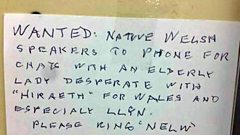 WANTED: NATIVE WELSH
SPEAKERS TO PHONE FOR
CHATS WITH AN ELDERLY
LADY DESPERATE WITH
"HIRAETH" FOR WALES AND
ESPECIALY LLŶN.
PLEASE RING: NELW